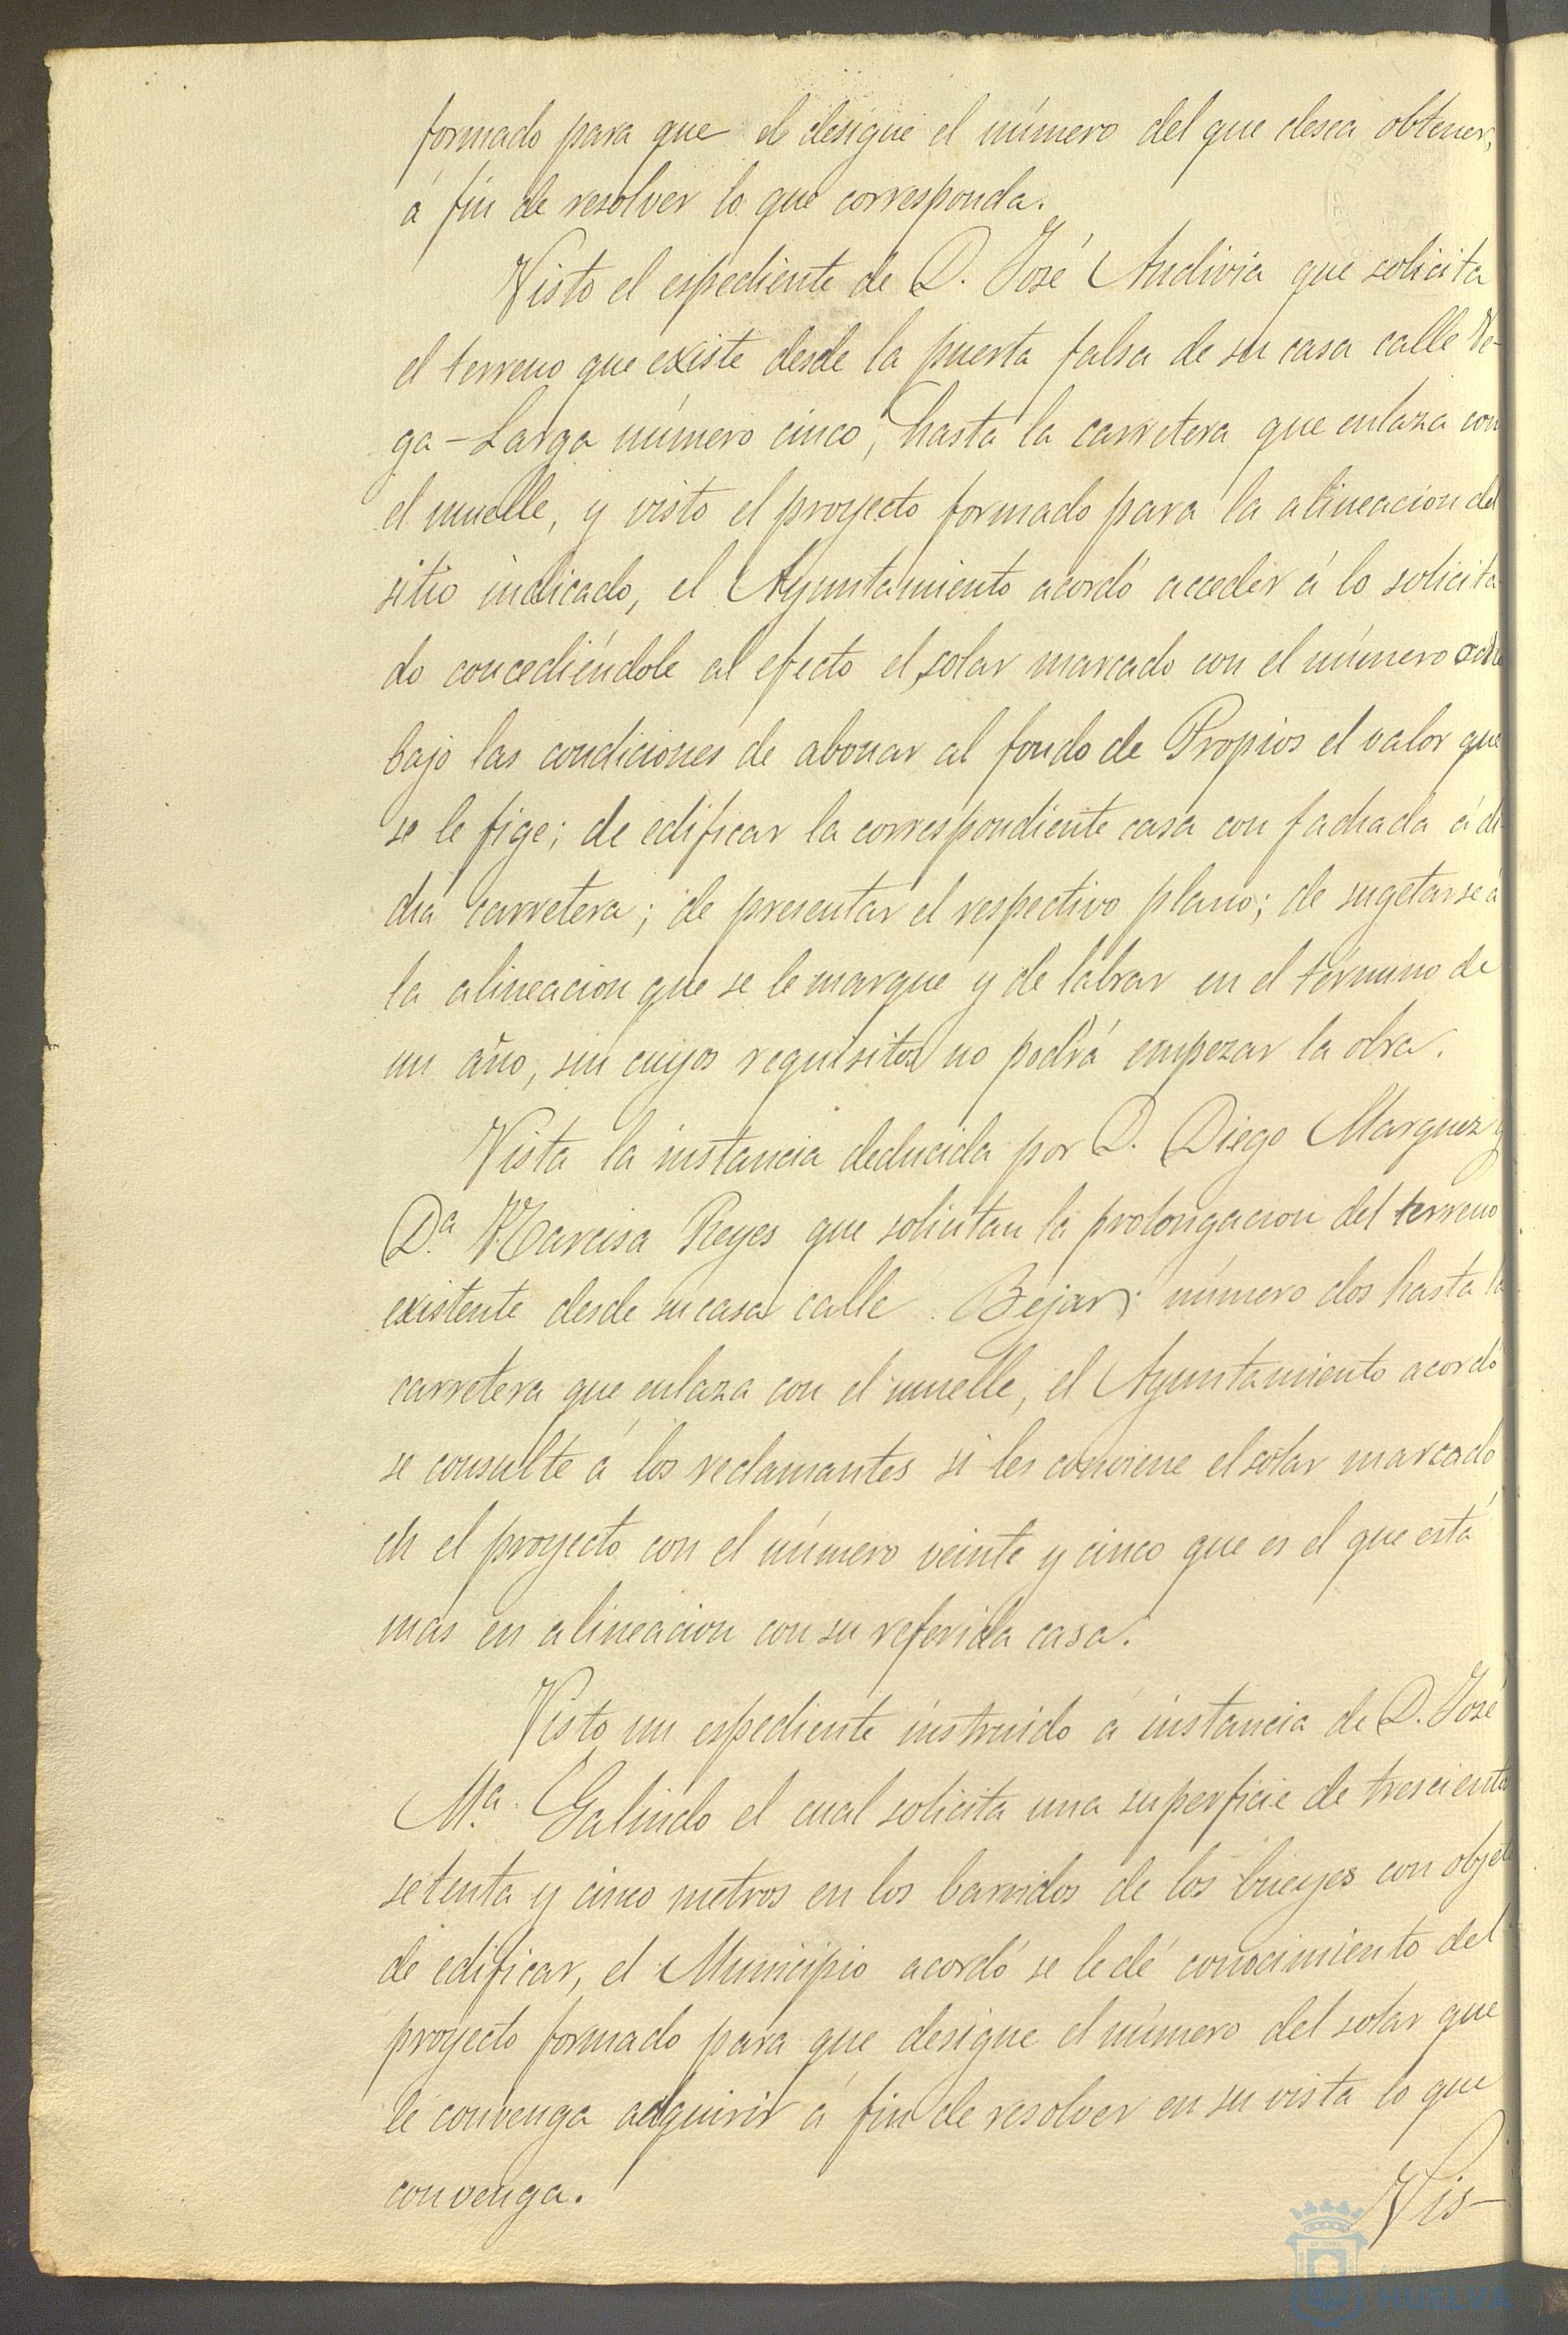 formado para que el desigue el número del que desea obtener,
á fin de resolver lo que corresponda.
Visto el espediente de D. José Andivia que solicita
el terreno que existe desde la puerta falsa de su casa calle Ve-
ga-Larga número cinco, hasta la carretera que enlaza con
el muelle, y visto el proyecto formado para la alineacion del
sitio indicado, el Ayuntamiento acordó acceder á lo solicita-
do concediéndole al efecto el solar marcado con el número
bajo las condiciones de abonar al fondo de Propios el valor que
se le fige; de edificar la correspondiente casa con fachada á di-
cha carretera; de presentar el respectivo plano; de sugetarse á
la alineacion que se le marque y de labrar en el término de
un año, sin cuyos requisitos no podrá empezar la obra.
Vista la instancia deducida por D. Diego Marquez y
D.ª Narcisa Reyes que solicitan la prolongacion del terreno
existente desde su casa calle Bejar, número dos hasta la
carretera que enlaza con el muelle, el Ayuntamiento acordó
se consulte á los reclamantes si les conviene el solar marcado
en el proyecto con el número veinte y cinco que es el que está
mas en alineacion con su referida casa.
Visto un espediente instruido á instancia de D. José
M.ª Galindo el cual solicita una superficie de trescientos
setenta y cinco metros en los barridos de los bueyes con objeto
de edificar, el Municipio acordó se le dé conocimiento del
proyecto formado para que desigue el número del solar que
le convenga adquirir á fin de resolver en su vista lo que
convenga.
Vis-
HUELVA